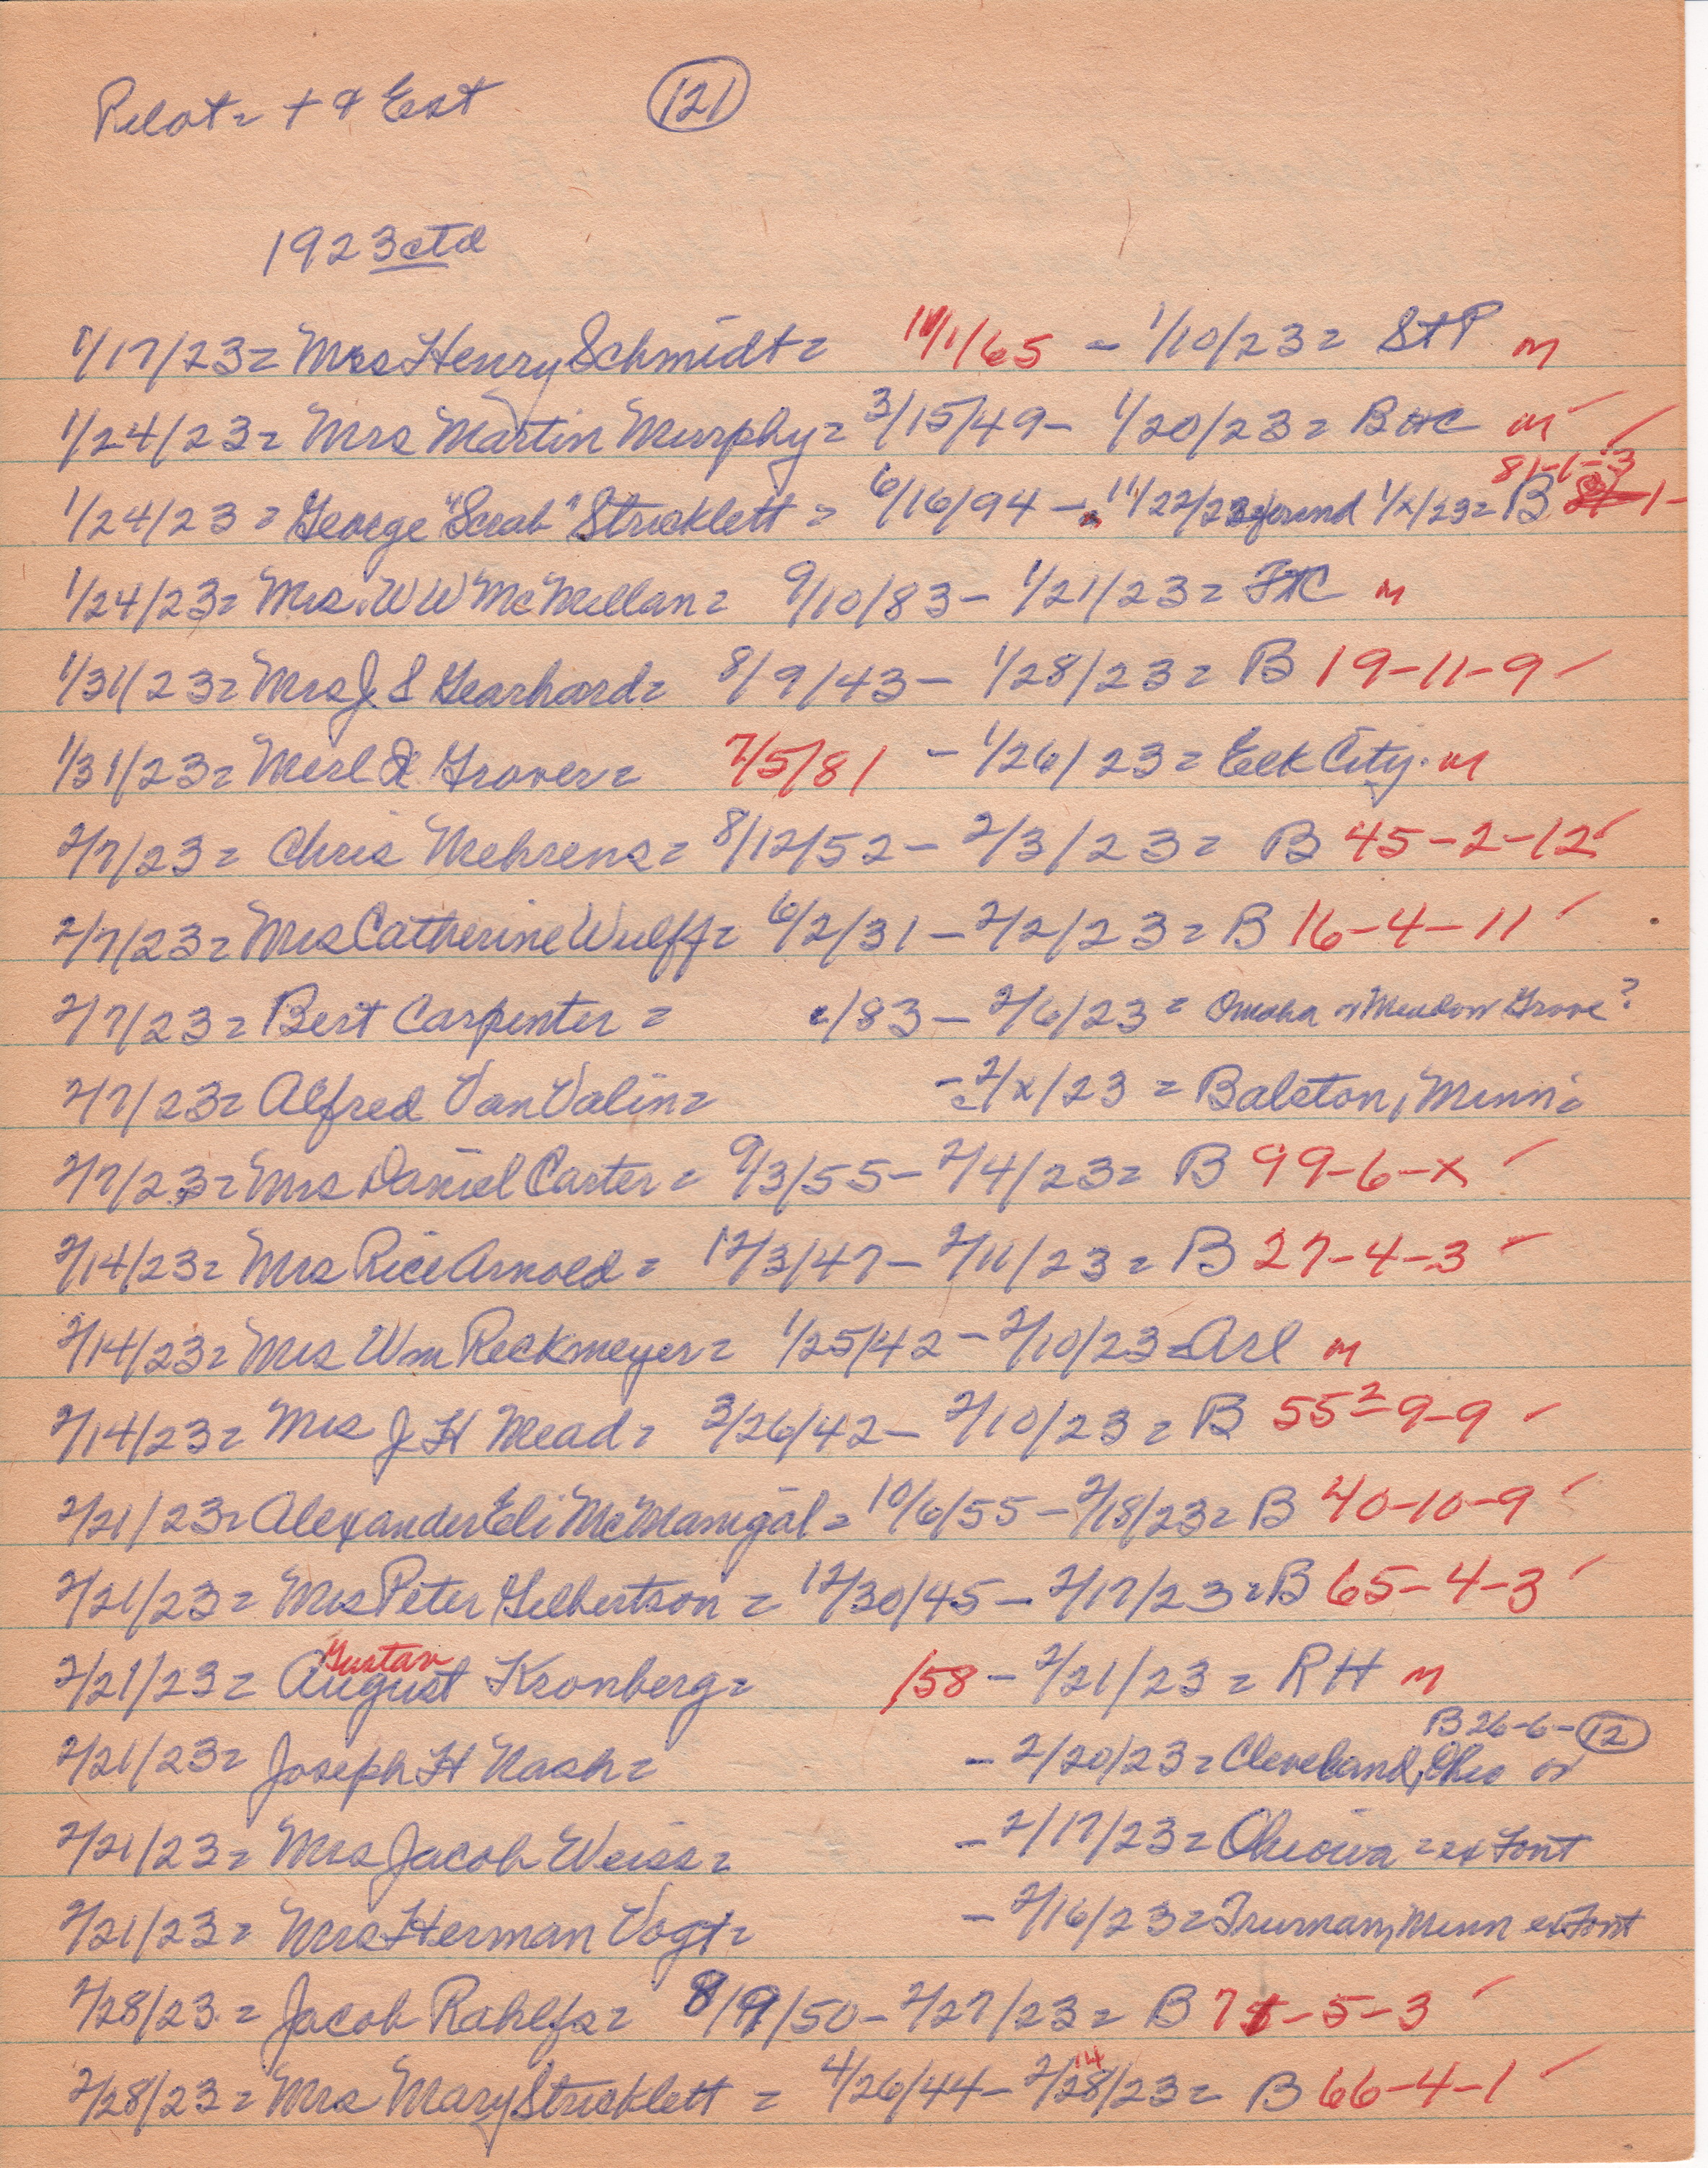 Pilot = + & Est (121)
1923 ctd
1/17/23 = Mrs Henry Schmidt = 11/1/65 - 1/10/23 = St P m
1/24/23 = Mrs Martin Murphy = 3/15/49 - 1/20/23 = B HC m
81-6-3
1/24/23 = George "Scrab" Stricklett = 6/16/94 - 11/22/22 found 1/x/23 = B
1/24/23 = Mrs. W W McMillan = 9/10/83 - 1/21/23 = FtC m
1/31/23 = Mrs J S Gearhard = 8/9/43 - 1/28/23 = B 19-11-9
1/31/23 = Merl Grover = 7/5/81 - 1/26/23 = Elk City. m
2/7/23 = Chris Mehrens = 8/12/52 - 2/3/23 = B 45-2-12
2/7/23 = Mrs Catherine Wulff = 6/2/31 - 2/2/23 = B 16-4-11
2/7/23 = Bert Carpenter = /83 - 2/6/23 = Omaha or Meadow Grove?
2/7/23 = Alfred VanValin = - 2/x/23 = Balaton, Minn =
2/7/23 = Mrs Daniel Carter = 9/3/55 - 2/4/23 = B 99-6-x
2/14/23 = Mrs Rice Arnold = 12/3/47 - 2/11/23 = B 27-4-3
2/14/23 = Mrs Wm Reckmeyer = 1/25/42 - 2/10/23 = Arl m
2/14/23 = Mrs J H Mead = 3/26/42 - 2/10/23 = B 55²-9-9
2/21/23 = Alexander Eli McManigal = 10/6/55 - 2/18/23 = B 40-10-9
2/21/23 = Mrs Peter Gilbertson = 12/30/45 - 2/17/23 = B 65-4-3
Gustav
2/21/23 = August Kronberg = /58 - 2/21/23 = RH m
B 26-6-(12)
2/21/23 = Joseph H Nash = - 2/20/23 = Cleveland, Ohio or
2/21/23 = Mrs Jacob Weiss = - 2/17/23 = Ohiowa = ex Font
2/21/23 = Mrs Herman Vogt = - 2/16/23 = Truman, Minn ex Font
2/28/23 = Jacob Rahlfs = 8/19/50 - 2/27/23 = B 75-5-3
14
2/28/23 = Mrs Mary Stricklett = 4/26/44 - 2/28/23 = B 66-4-1